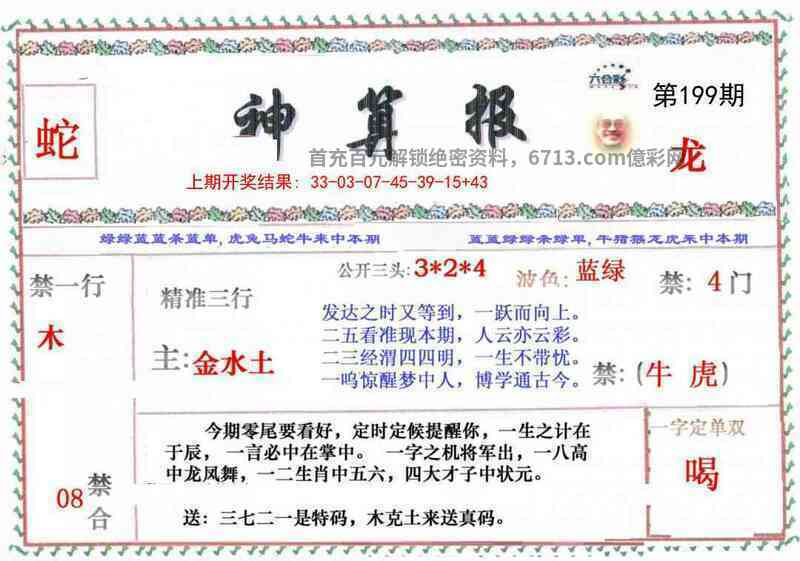 六合彩
第199期
蛇
神算报
龙
首充百元解锁绝密资料，6713.com億彩网
上期开奖结果：33-03-07-45-39-15+43
绿绿蓝蓝条蓝单，虎兔马蛇牛来中本期
蓝蓝绿绿条绿单，牛猪猴龙虎来中本期
禁一行
木
精准三行
主:金水土
公开三头:3*2*4
波色:蓝绿
禁:4门
发达之时又等到，一跃而向上。
二五看准现本期，人云亦云彩。
二三经渭四四明，一生不带忧。
一鸣惊醒梦中人，博学通古今。
禁:(牛 虎)
08禁合
今期零尾要看好，定时定候提醒你，一生之计在
于辰，一言必中在掌中。 一字之机将军出，一八高
中龙凤舞，一二生肖中五六，四大才子中状元。
送：三七二一是特码，木克土来送真码。
一字定单双
喝